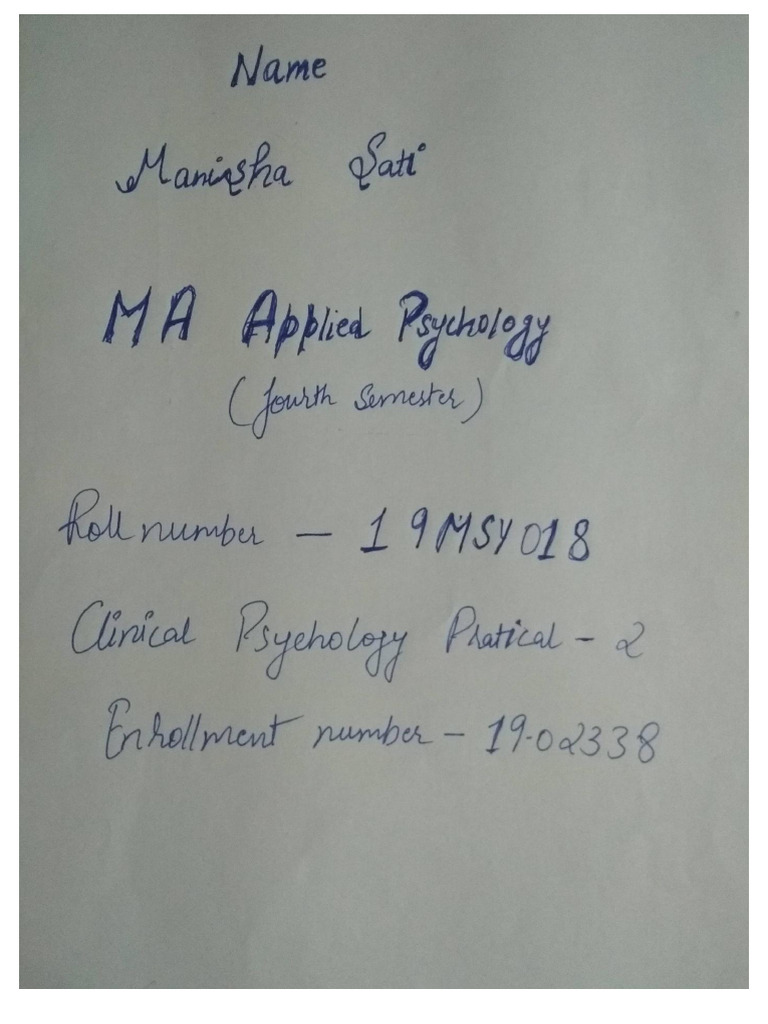 Name
Manisha Sati
MA Applied Psychology
(fourth semester)
Roll number - 19MSY018
Clinical Psychology Pratical - 2
Enrollment number - 19-02338